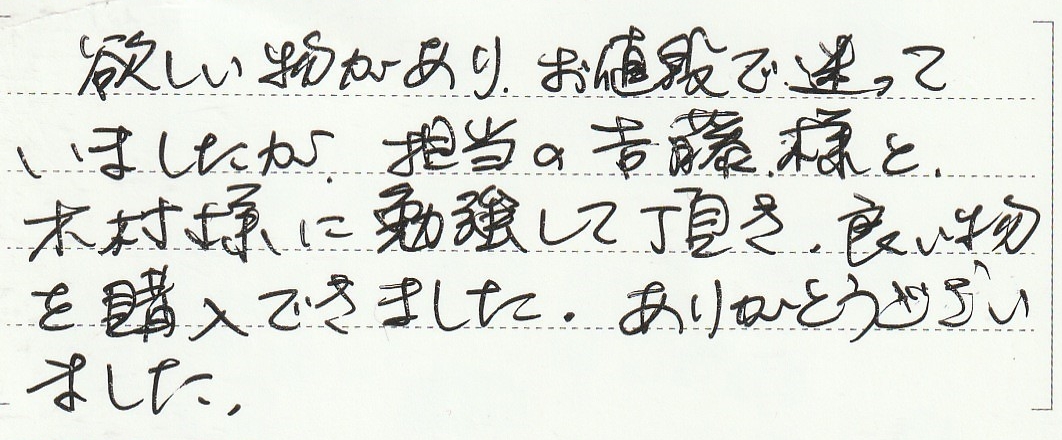 欲しい物があり、お値段で迷って
いましたが、担当の吉藤様と、
木村様に勉強して頂き、良い物
を購入できました。ありがとうござい
ました。